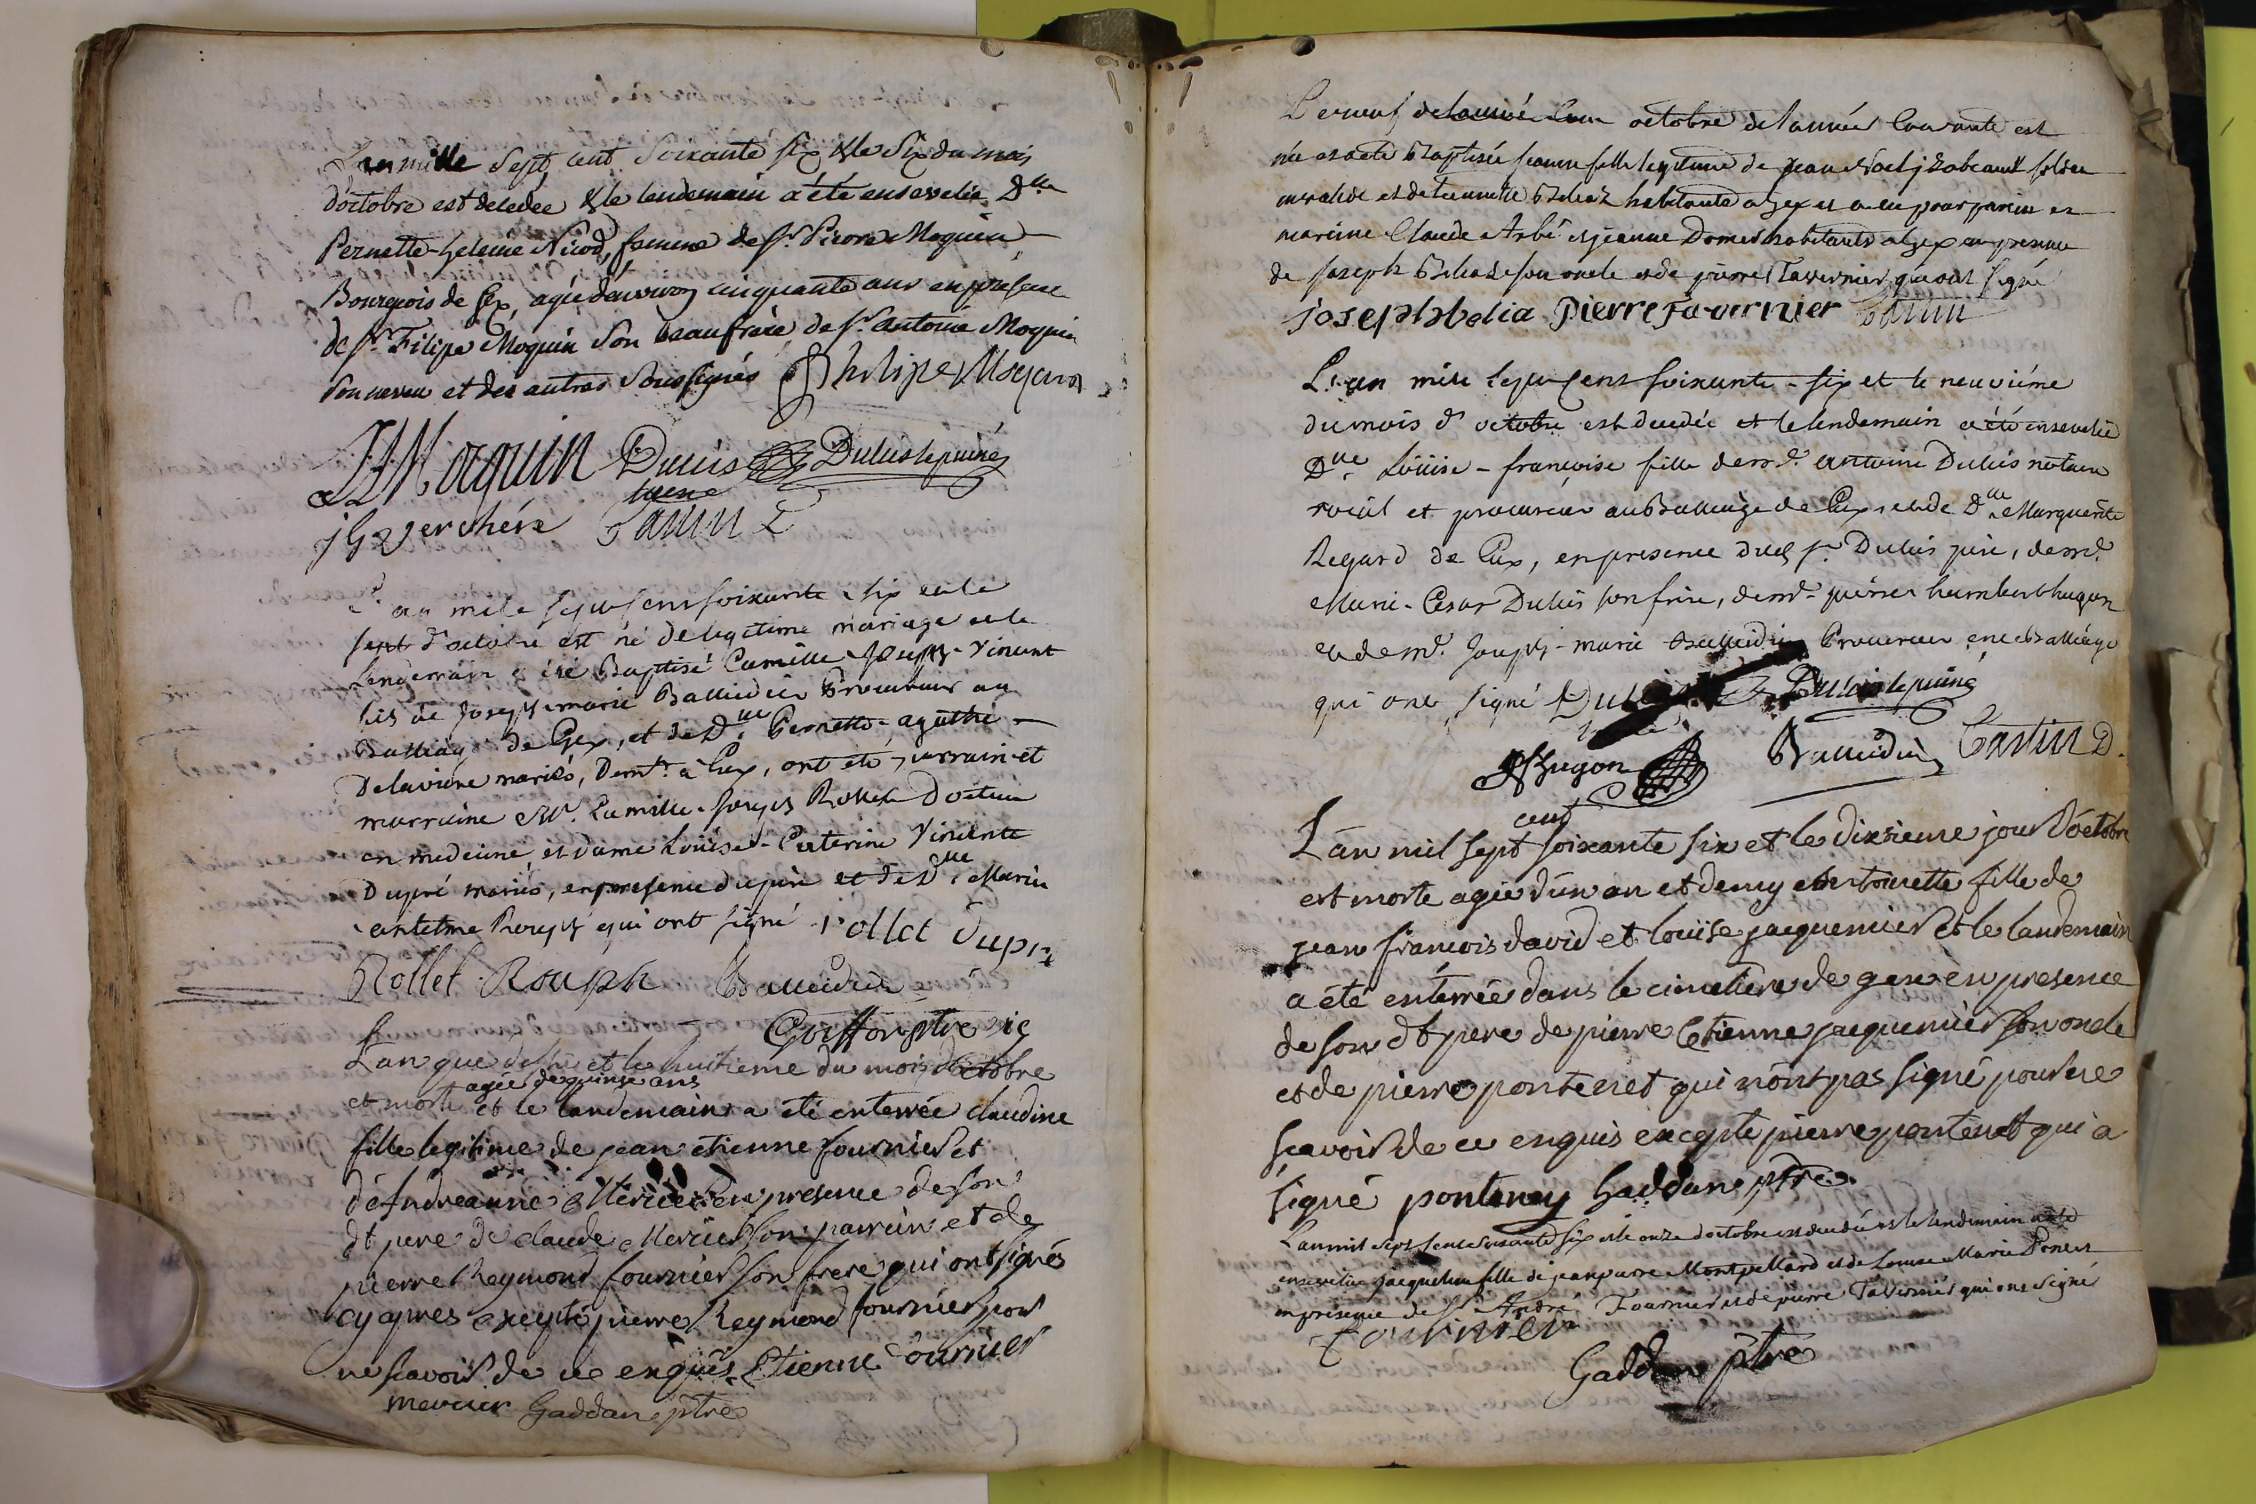 L'an mille Sept cent Soixante six & le Six du mois
d'octobre est décédée & le lendemain a été ensevelie Dlle
Pernette-heleine Nicod, femme de Sr Pierre Moquin
Bourgeois de Gex, agée d'environ cinquante ans en présence
de Sr Filipe Moquin Son beaufrère, de Sr antoine Moquin
son neveu et des autres Soussignés Philipe Moquin
Moquin Duluis Duluis le puiné
jG Verchére Castin D
L'an mile sept sens soixante six et le
sept d'octobre est né de legitime mariage et le
lendemain a été Baptisé Camille-Joseph-Vincent
fils de Joseph-marie Balleidier Procureur au
Balliage de Gex, et de Dlle Pernette-agathe
Delavione mariés, Demts à Gex, ont été parrain et
marraine Mr. Camille-Joseph Rollet Docteur
en medecine, et dame Loüise-Caterine Vincente
Dupré mariés, en presence du père et de Dlle Marie
antelme Rouph qui ont signé Rollet Dupré
Rollet Rouph Balleidier
Goiffon ptre vic
L'an que dessus et le huitieme du mois d'octobre
agée de quinse ans
est morte et le landemain a été enterrée claudine
fille legitime de jean etienne fournier et
d'Andreanne Mercier en presence de son
dt pere de claude Mercier son parrain et de
pierre Reymond fournier son frere qui ont signés
cy apres excepté pierre Reymond fournier pour
ne scavoir de ce enquis Etienne Fournier
mercier Gaddan ptre
Le neuf octobre de l'année Courante est
née et a eté Baptisée jeanne fille legitime de jean Noel
invalide et de habitants a Gex et a eu pour parin et
mareine Claude et jeanne Domer habitants a gex en presence
de joseph son oncle et de pierre Tavernier qui ont signé
joseph belia Pierre Tavernier Castin
L'an mile sept sens soixante-six et le neuviéme
du mois d'octobre est decedée et le lendemain a été ensevelie
Dlle Loüise-françoise fille de Mr. antoine Duluis notaire
roïal et procureur au Balliage de Gex, et de Dlle Marguerite
Regard de Gex, en presence dudt Sr Duluis père, de Mr.
Marie-Cesar Duluis son frère, de Mr. pierre humbert hugon
et de Mr. Joseph-marie Balleidier Procureur en ce Balliage
qui ont signé Duluis Duluis le puiné
hugon Balleidier Castin D.
cent
L'an mil sept soixante six et le dixsieme jour d'octobre
est morte agée d'un an et demy fille de
jean francois david et loüise jacquemier et le landemain
a été enterrée dans le cimetiere de gex en presence
de son dt pere de pierre Etienne jacquemier son oncle
et de pierre pontenet qui n'ont pas signé pour ne
scavoir de ce enquis excepté pierre pontenet qui a
signé ponteney Gaddan ptre
L'an mil sept sens soisante six et le onze d'octobre est decedée et le lendemain a été
ensevelie jacqueline fille de jean pierre Montpellard et de Louise Marie Poncet
en présence de Sr André Fournier et de pierre Tavernier qui ont signé
Fournier
Gaddan ptre